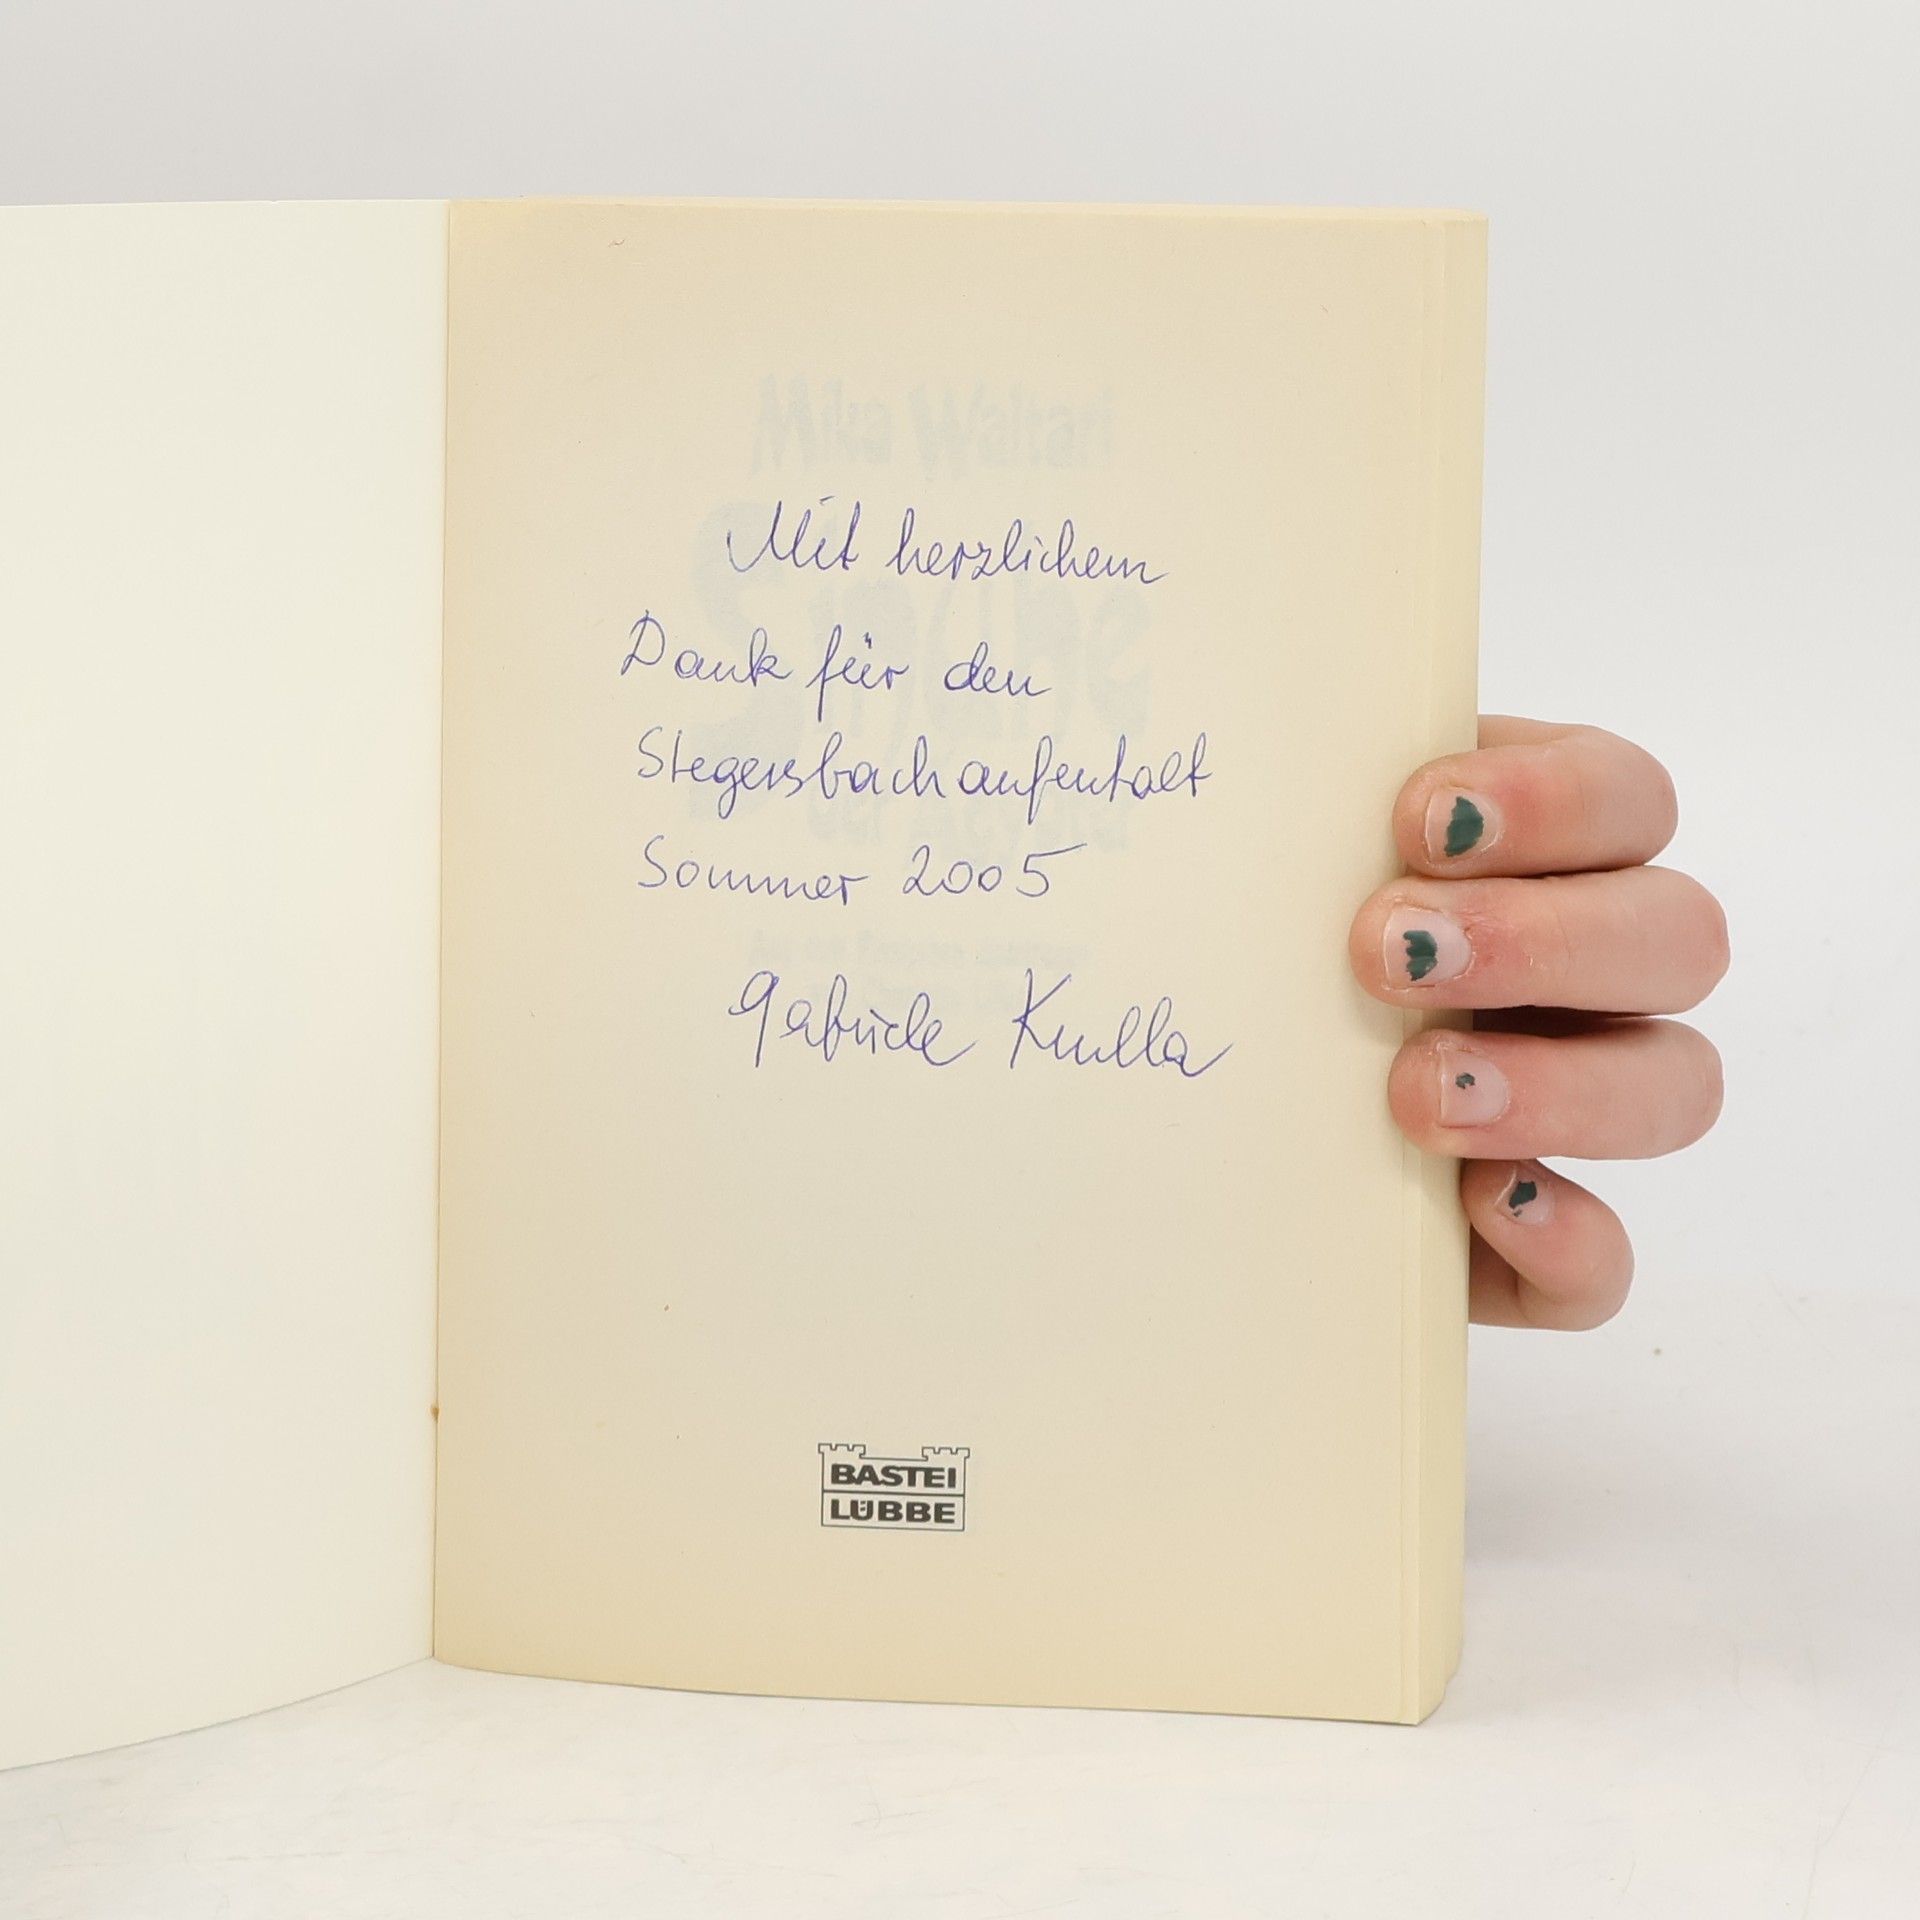 Mika Waltari
Mit herzlichem
Dank für den
Stegersbachaufenthalt
Sommer 2005
Gabriele Krulla
BASTEI
LÜBBE